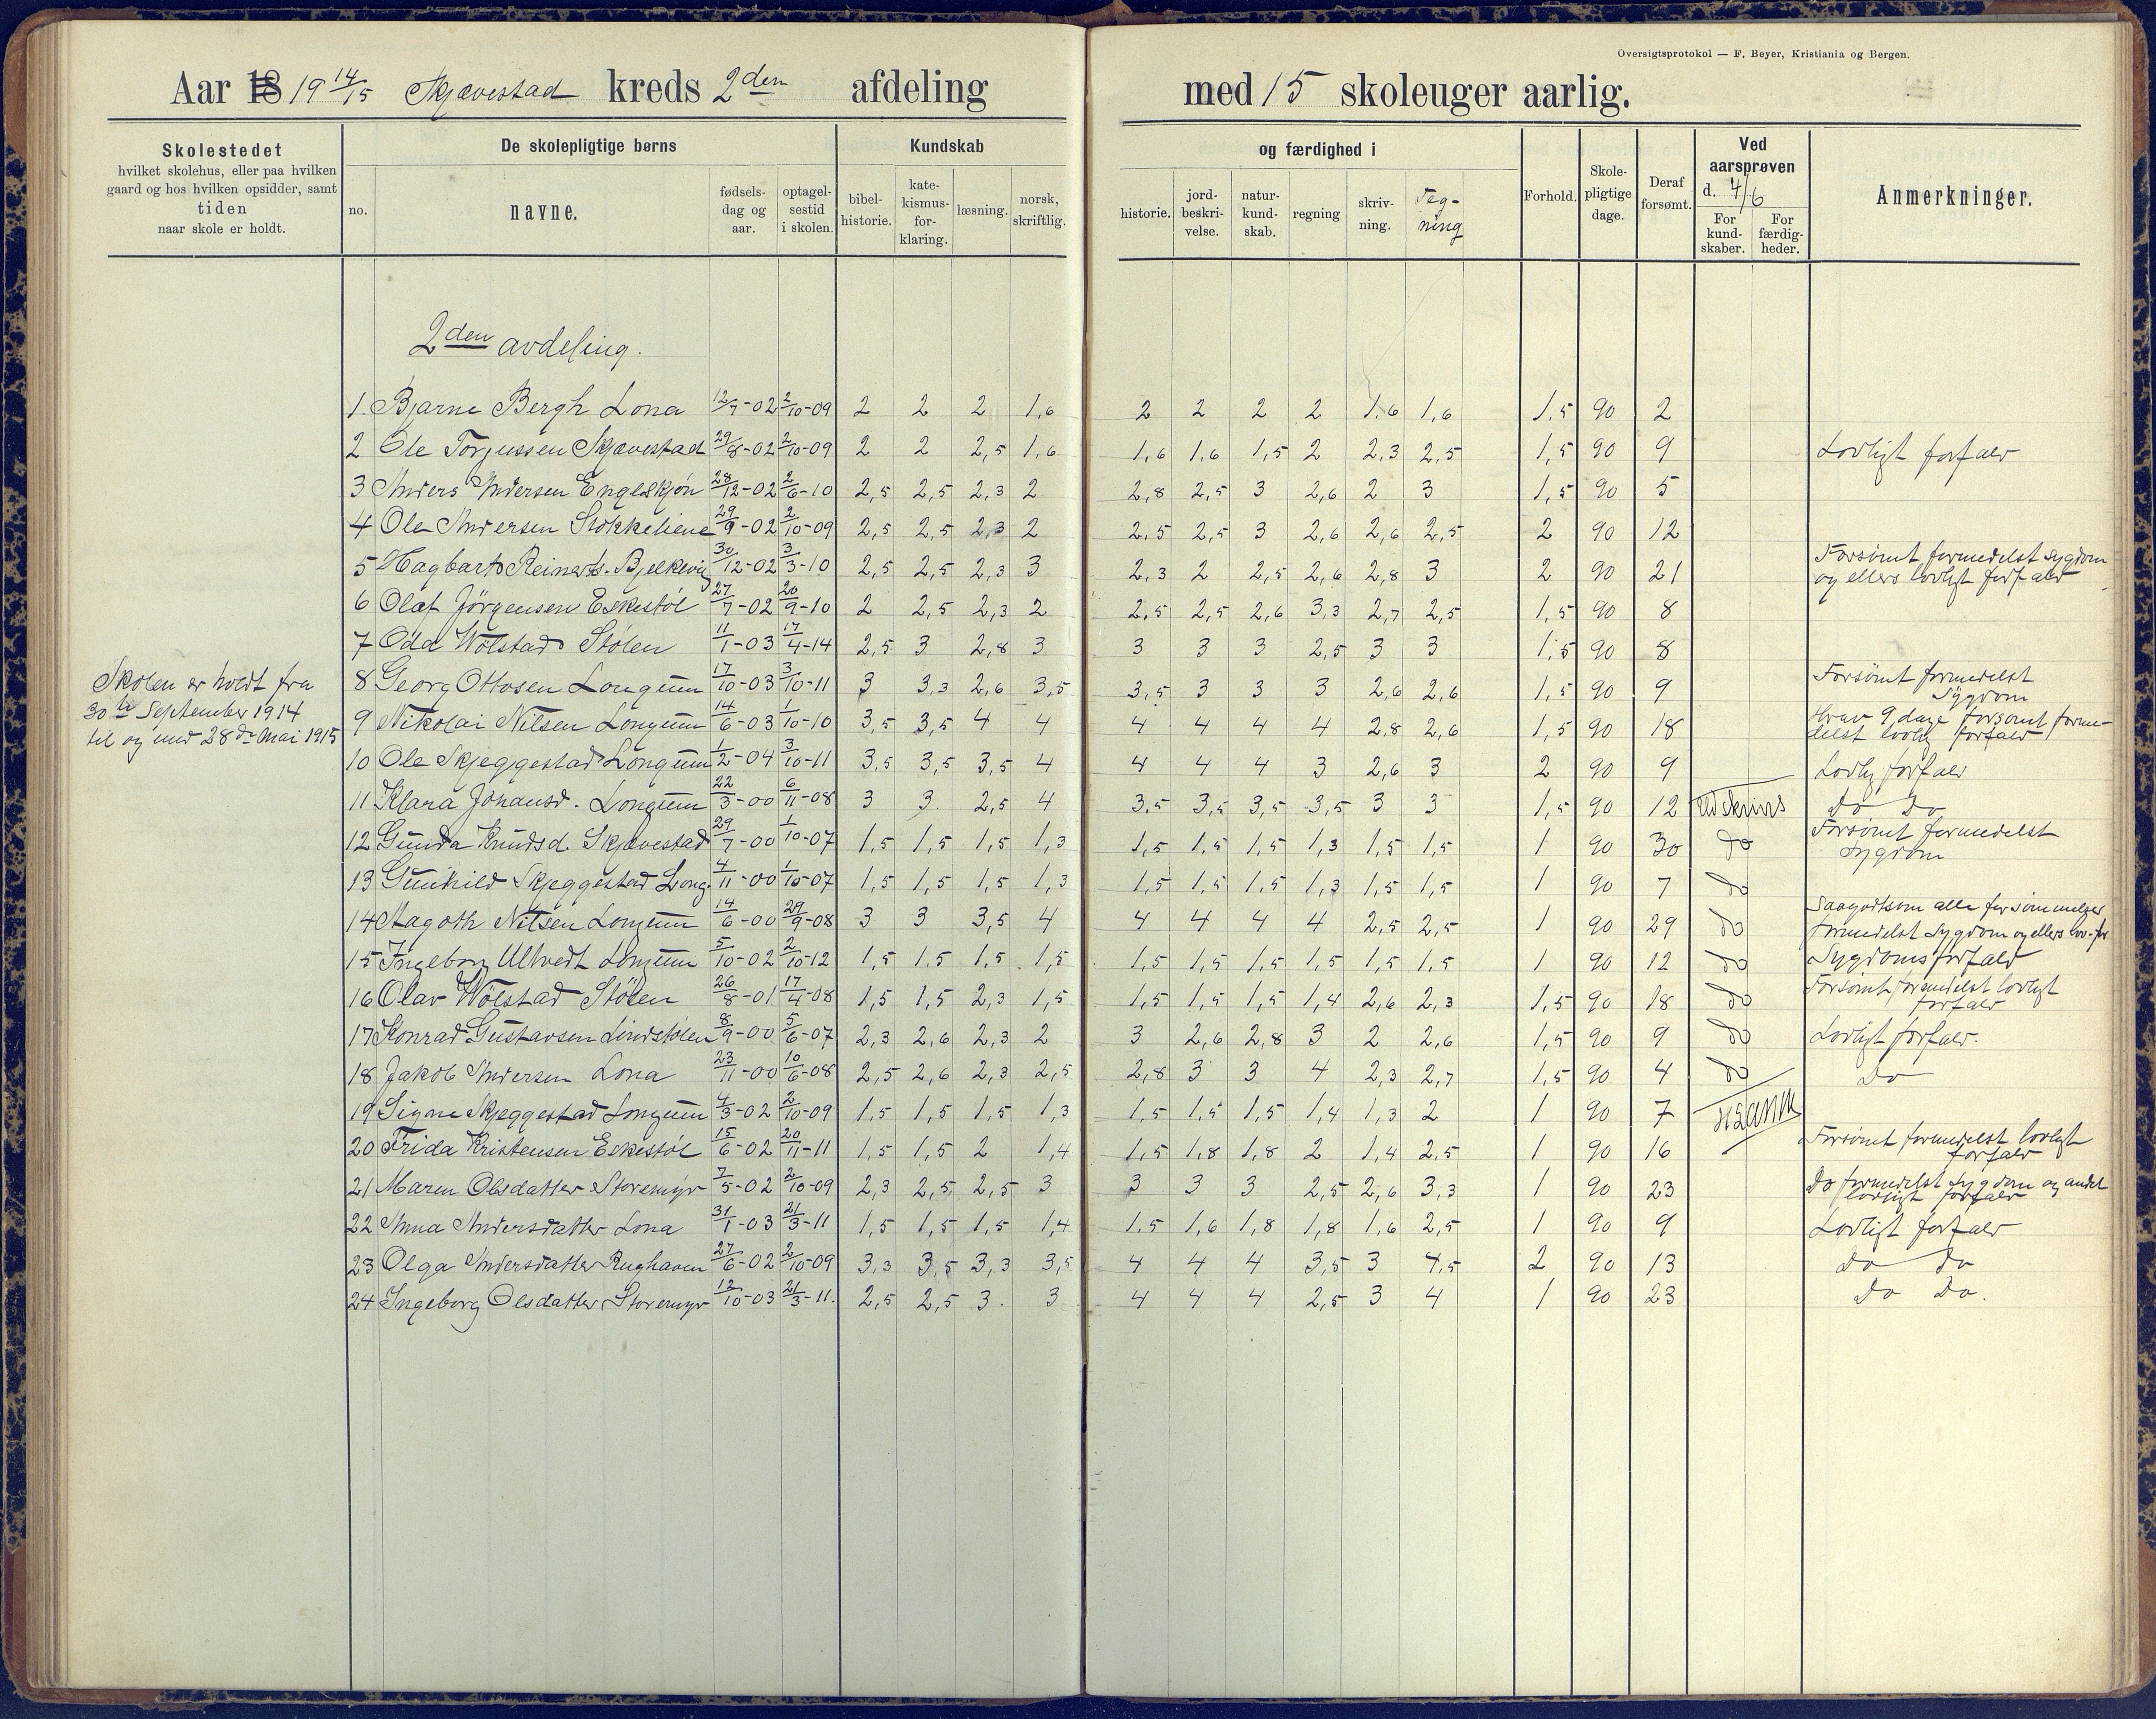 Oversigtsprotokol — F. Beyer, Kristiania og Bergen.
Aar 18 19 14/15 Skjævestad kreds 2den afdeling med 15 skoleuger aarlig.
Skolestedet
hvilket skolehus, eller paa hvilken
gaard og hos hvilken opsidder, samt
tiden
naar skole er holdt.
De skolepligtige børns
no.
navne.
fødsels-
dag og
aar.
optagel-
sestid
i skolen.
Kundskab
bibel-
historie.
kate-
kismus-
for-
klaring.
læsning.
norsk,
skriftlig.
og færdighed i
historie.
jord-
beskri-
velse.
natur-
kund-
skab.
regning
skriv-
ning.
Teg-
ning
Forhold.
Skole-
pligtige
dage.
Deraf
forsømt.
Ved
aarsprøven
d. 4/6
For
kund-
skaber.
For
færdig-
heder.
Anmerkninger.
2den avdeling.
Skolen er holdt fra
30te September 1914
til og med 28de Mai 1915
1 Bjarne Bergh Lona 12/7-02 2/10-09 2 2 2 1,6 2 2 2 2 1,6 1,6 1,5 90 2
2 Ole Torjussen Skjævestad 29/8-02 2/10-09 2 2 2,5 1,6 1,6 1,6 1,5 2 2,3 2,5 1,5 90 9 Lovligt forfald
3 Anders Andersen Englskjøn 28/12-02 2/6-10 2,5 2,5 2,3 2 2,8 2,5 3 2,6 2 3 1,5 90 5
4 Ole Andersen Stokkeliene 29/9-02 2/10-09 2,5 2,5 2,3 2 2,5 2,5 3 2,6 2,6 2,5 2 90 12
5 Hagbart Reinerts. Bjelkevig 30/12-02 3/3-10 2,5 2,5 2,3 3 2,3 2 2,5 2,6 2,8 3 2 90 21 Forsømt formedelst sygdom
og ellers lovligt forfald
6 Olaf Jörgensen Eskestöl 27/7-02 20/9-10 2 2,5 2,3 2 2,5 2,5 2,6 3,3 2,7 2,5 1,5 90 8
7 Odd Wölstad Stölen 11/1-03 17/4-14 2,5 3 2,8 3 3 3 3 2,5 3 3 1,5 90 8
8 Georg Ottosen Longum 17/10-03 3/10-11 3 3,3 2,6 3,5 3,5 3 3 3 2,6 2,6 1,5 90 9 Forsømt formedelst
Sygdom
9 Nikolai Nilsen Longum 14/6-03 1/10-10 3,5 3,5 4 4 4 4 4 4 2,8 2,6 1,5 90 18 Hvav 9 dage forsømt forme-
delst lovlig forfald
10 Ole Skjeggestad Longum 1/2-04 3/10-11 3,5 3,5 3,5 4 4 4 4 3 2,6 3 2 90 9 Lovlig forfald
11 Klara Johansd. Longum 22/3-00 6/11-08 3 3 2,5 4 3,5 3,5 3,5 3,5 3 3 1,5 90 12 Udskrives Do Do
12 Gunda Knudsd. Skjævestad 29/7-00 1/10-07 1,5 1,5 1,5 1,3 1,5 1,5 1,5 1,3 1,5 1,5 1 90 30 do Forsømt formedelst
sygdom
13 Gunhild Skjeggestad Long. 4/11-00 1/10-07 1,5 1,5 1,5 1,3 1,5 1,5 1,5 1,3 1,5 1,5 1 90 7 do
14 Aagoth Nilsen Longum 14/6-00 29/9-08 3 3 3,5 4 4 4 4 4 2,5 2,5 1 90 29 do Saagodtsom alle forsømmelser
formedelst Sygdom og ellers lov-for
15 Ingeborg Ulltvedt Longum 5/10-02 2/10-12 1,5 1,5 1,5 1,5 1,5 1,5 1,5 1,5 1,5 1,5 1 90 12 do Sygdomsforfald
16 Olav Wölstad Stölen 26/8-01 17/4-08 1,5 1,5 2,3 1,5 1,5 1,5 1,5 1,4 2,6 2,3 1,5 90 18 do Forsømt formedelst lovligt
forfald
17 Konrad Gustavsen Lindstölen 8/9-00 5/6-07 2,3 2,6 2,3 2 3 2,6 2,8 3 2 2,6 1,5 90 9 do Lovligt forfald.
18 Jakob Andersen Lona 23/11-00 10/6-08 2,5 2,6 2,3 2,5 2,8 3 3 4 2,3 2,7 1,5 90 4 do Do
19 Signe Skjeggestad Longum 4/3-02 2/10-09 1,5 1,5 1,5 1,3 1,5 1,5 1,5 1,4 1,3 2 1 90 7
20 Frida Kristensen Eskestöl 15/6-02 20/11-11 1,5 1,5 2 1,4 1,5 1,8 1,8 2 1,4 2,5 1 90 16 Forsømt formedelst lovligt
forfald
21 Maren Olsdatter Storemyr 7/5-02 2/10-09 2,3 2,5 2,5 3 3 3 3 2,5 2,6 3,3 1 90 23 Do formedelst sygdom og andet
lovligt forfald
22 Anna Andersdatter Lona 31/1-03 21/3-11 1,5 1,5 1,5 1,4 1,5 1,6 1,8 1,8 1,6 2,5 1 90 9 Lovligt forfald
23 Olga Andersdatter Rughaven 27/6-02 2/10-09 3,3 3,5 3,3 3,5 4 4 4 3,5 3 4,5 2 90 13 Do Do
24 Ingeborg Olsdatter Storemyr 12/10-03 21/3-11. 2,5 2,5 3. 3 4 4 4 2,5 3 4 1 90 23 Do Do.